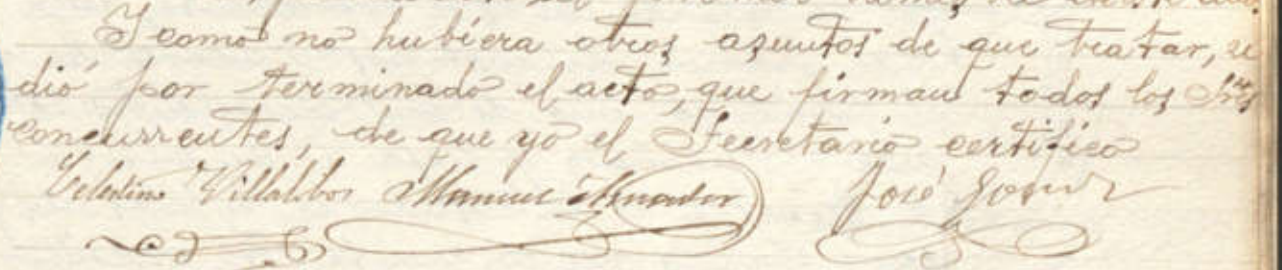 I como no hubiera otros asuntos de que tratar, se
dió por terminado el acto, que firman todos los Sres
concurrentes, de que yo el Secretario certifico
Celestino Villalobos Manuel Amador José